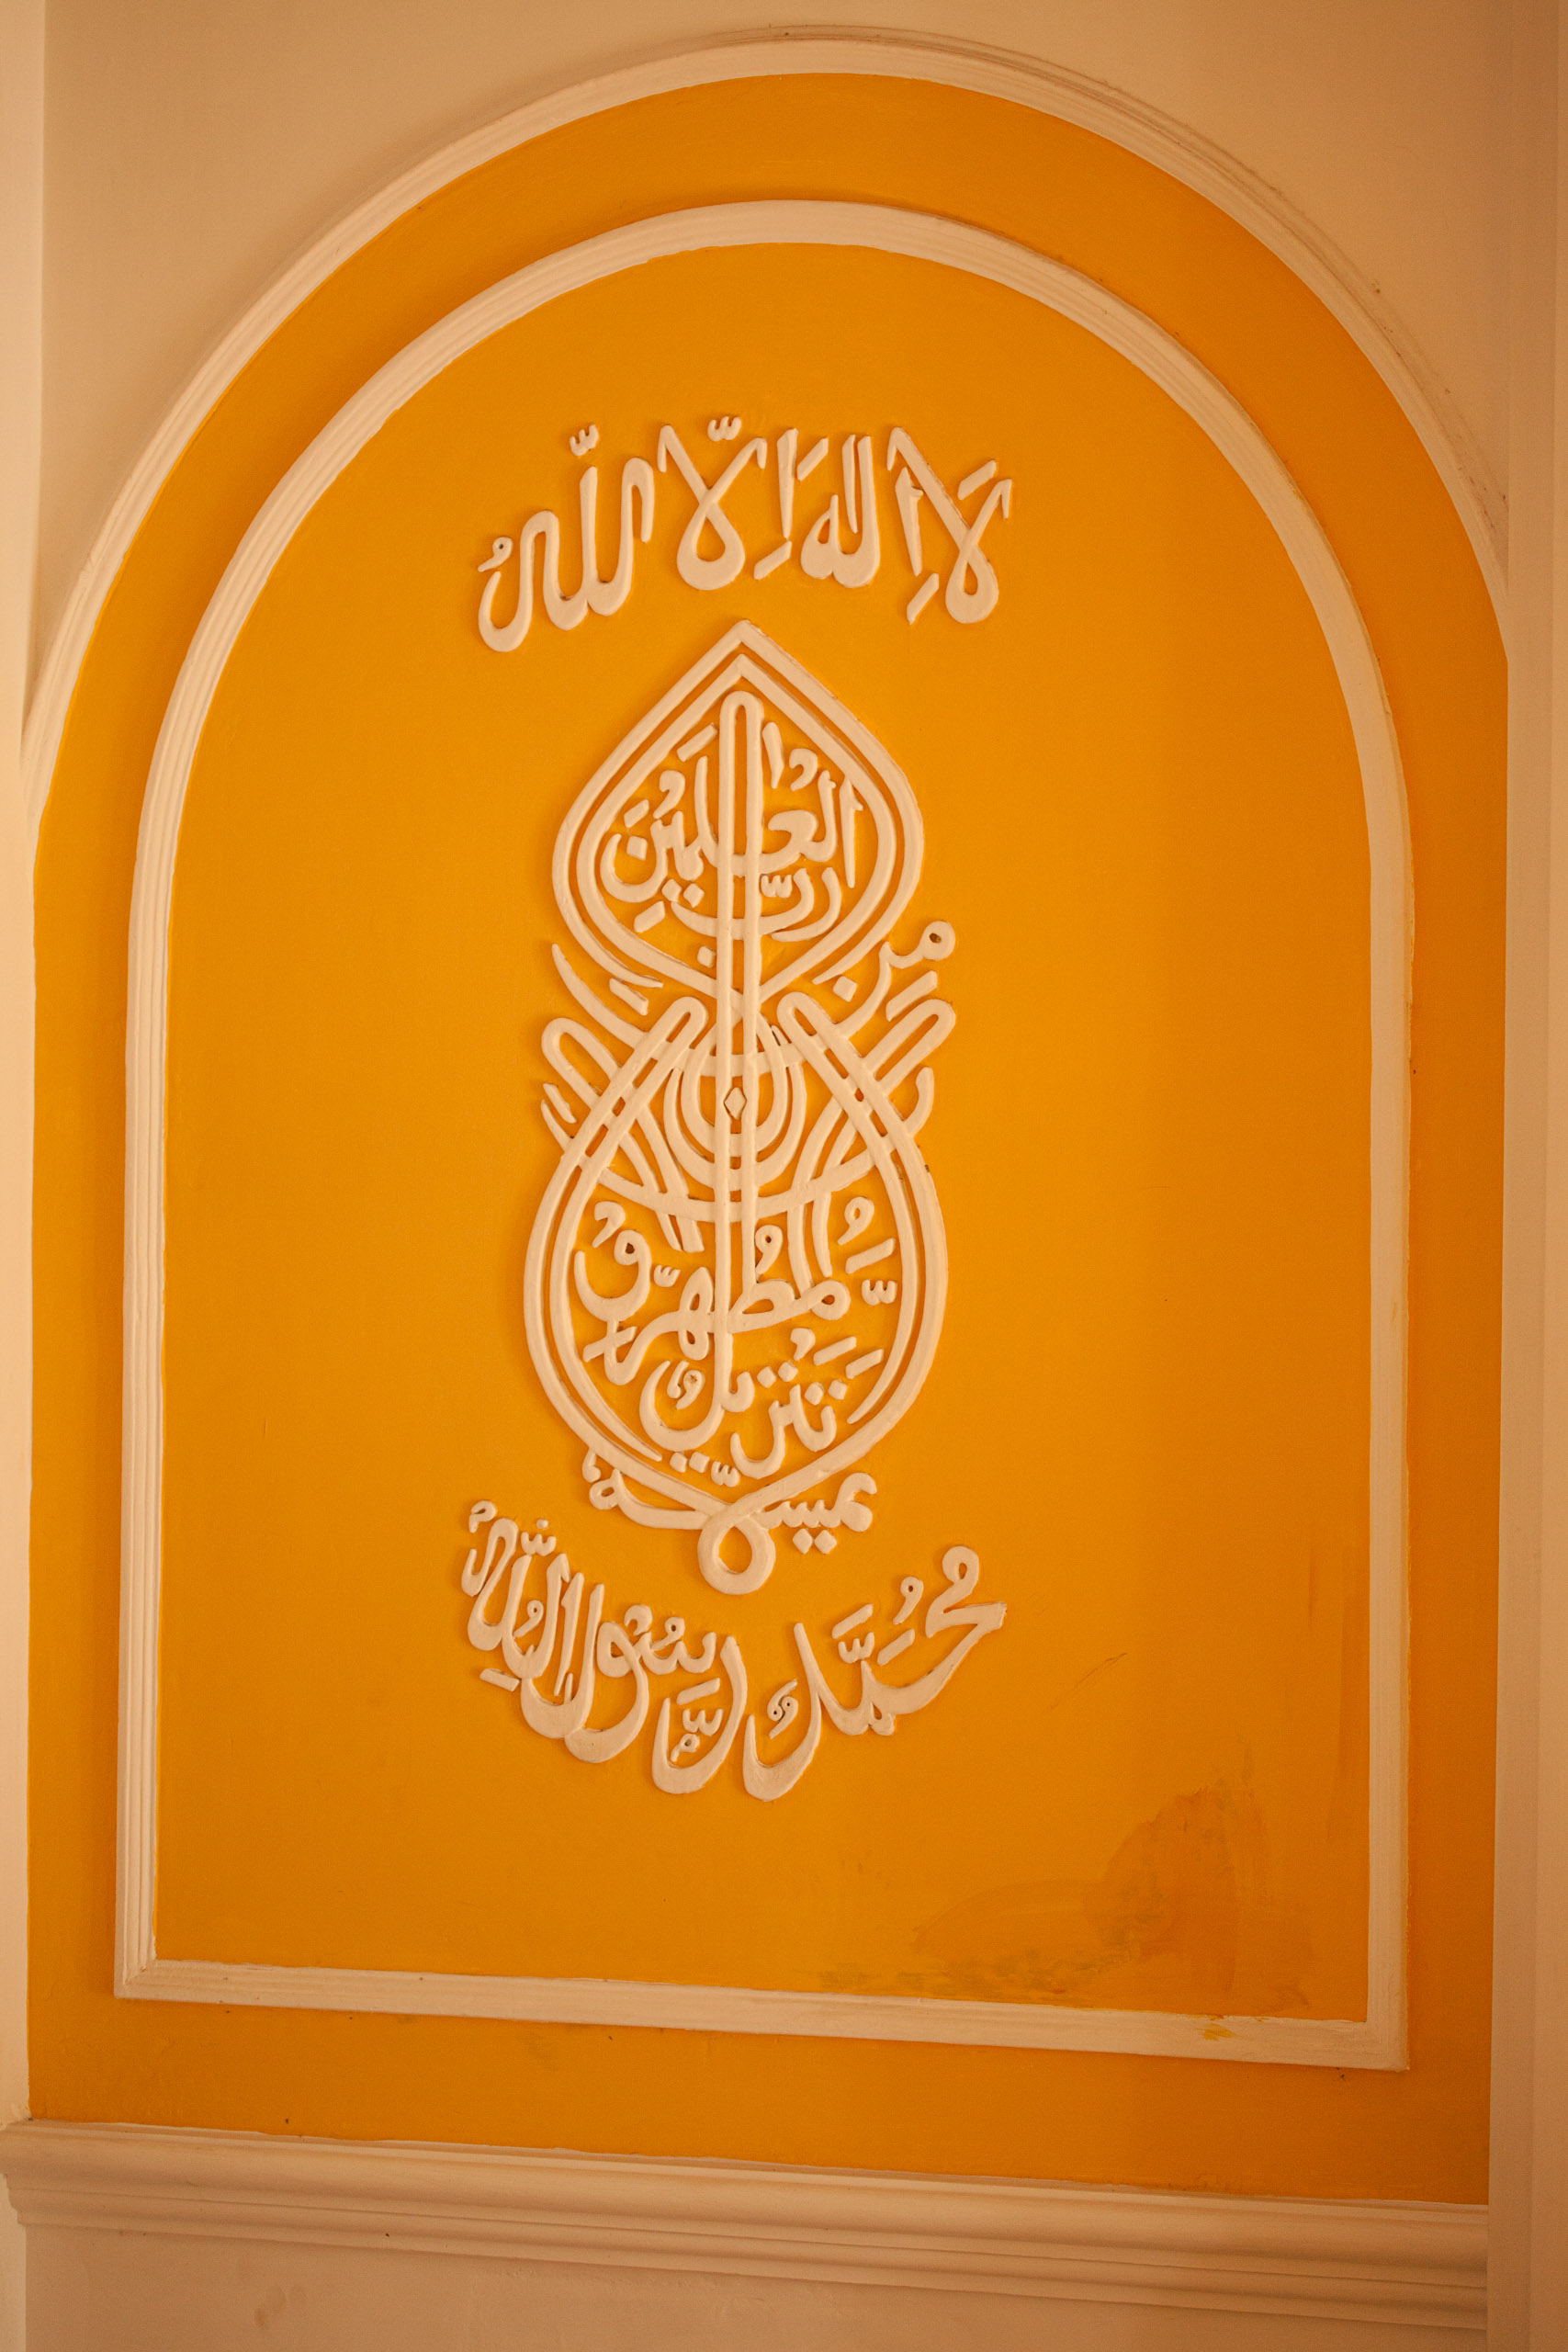 لَا إِلٰهَ إِلَّا اللّٰهُ
لَا يَمَسُّهُ إِلَّا الْمُطَهَّرُونَ
تَنْزِيلٌ مِنْ رَبِّ الْعٰلَمِينَ
مُحَمَّدٌ رَّسُوْلُ اللّٰهِ